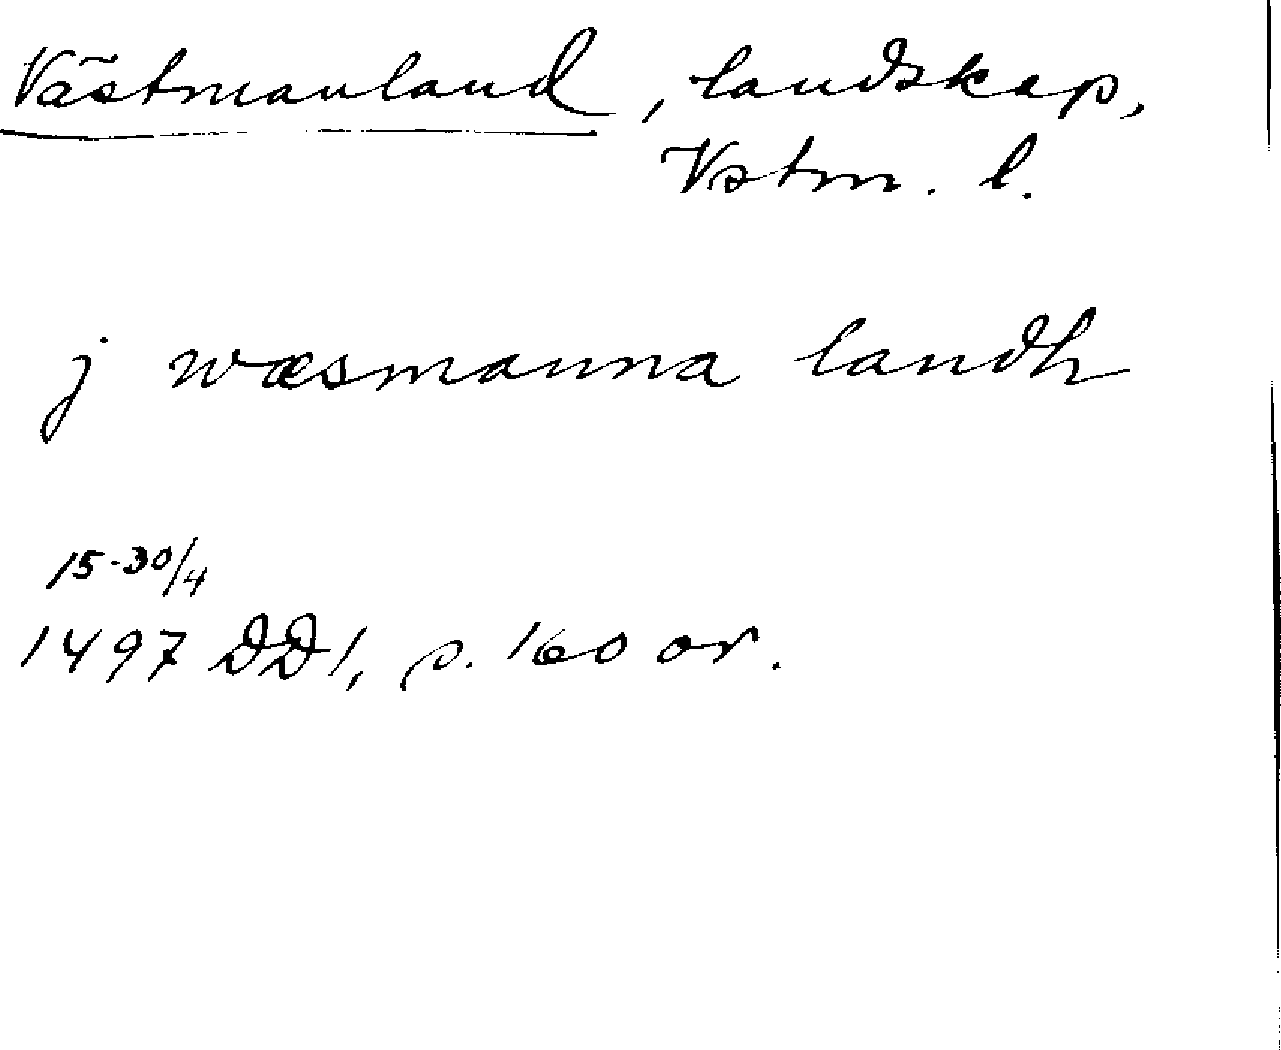 Västmanland, landskap,
Vstm. l.
j wæsmanna landh
15-30/4
1497 DD1, s. 160 or.